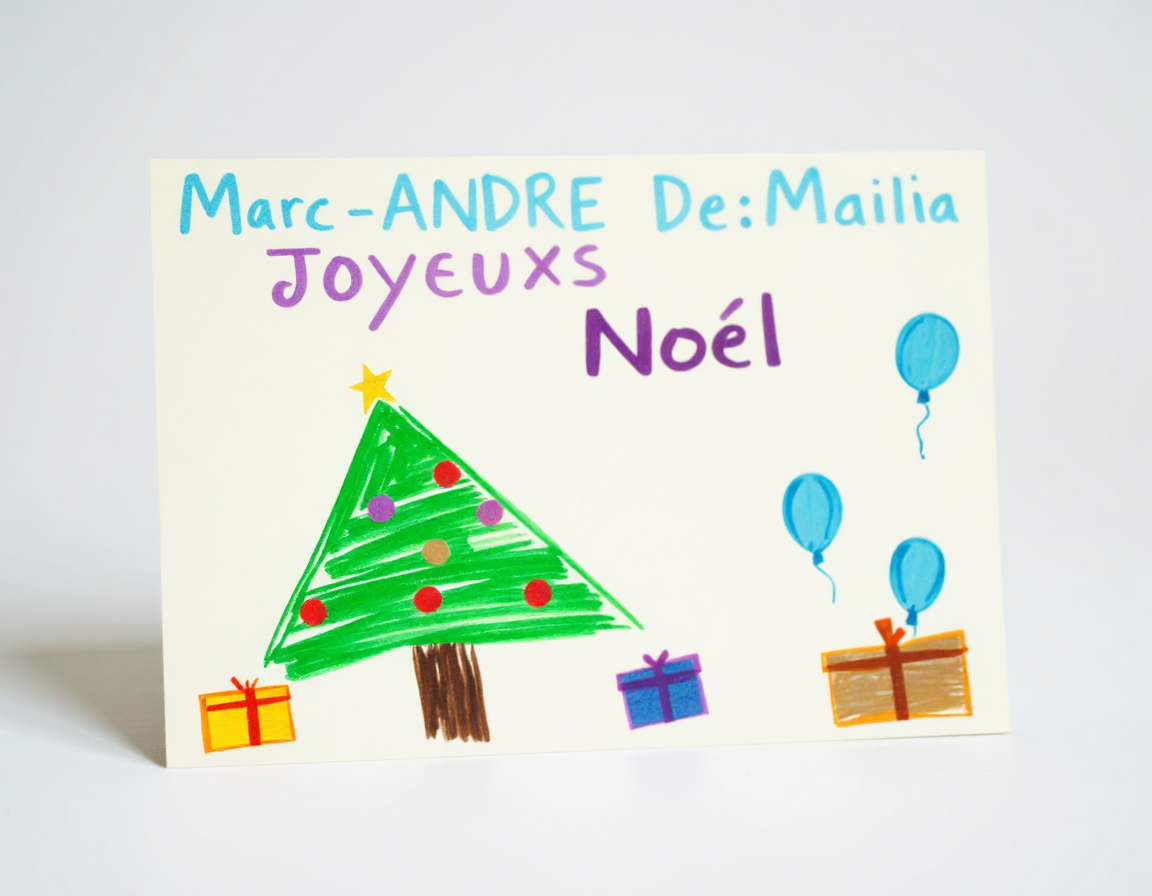 Marc-ANDRE De: Mailia
JOYEUXS
Noél